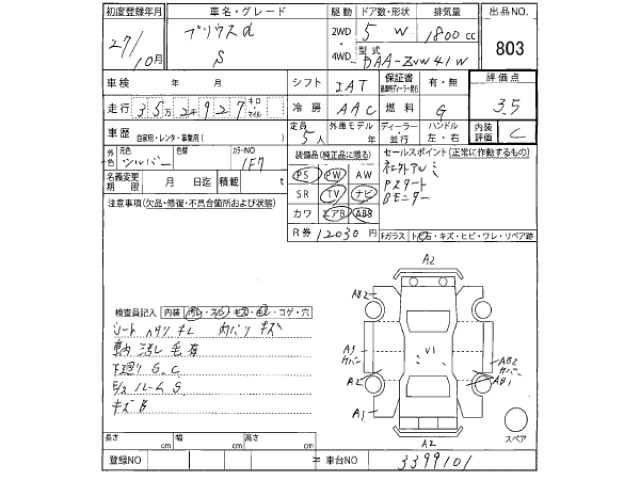 初度登録年月 車名・グレード 駆動 ドア数・形状 排気量 出品NO.
27/10月 プリウスα S 2WD・4WD 5 W 1800cc 803
型式 DAA-ZVW41W
車検 年 月 シフト IAT 保証書 有・無 評価点
走行 352927 キロ・マイル 冷房 AAC 燃料 G 3.5
車歴 自家用・レンタ・事業用( ) 定員 5人 外車モデル 年 ディーラー・並行 ハンドル 左・右 内装評価 C
外色 元色 シルバー 色替 カラーNO 1F7 装備品(純正品に限る) セールスポイント(正常に作動するもの)
名義変更期限 月 日迄 積載 t PS PW AW
Pスタート
SR TV ナビ Bモニター
注意事項(欠品・修復・不具合箇所および状態) カワ エアB ABS
R券 12030円 Fガラス トビ石・キズ・ヒビ・ワレ・リペア跡
A2
AB2
検査員記入 内装 汚レ・スレ・キズ・切レ・コゲ・穴
シート ヘタリ キレ 内バリ キズ
車内 汚レ 毛有 V1 AB2
下廻り S.C A2 AB1
E/ルーム S
キズB A1
スペア
長さ cm 幅 cm 高さ cm A2
登録NO = 車台NO 3399101